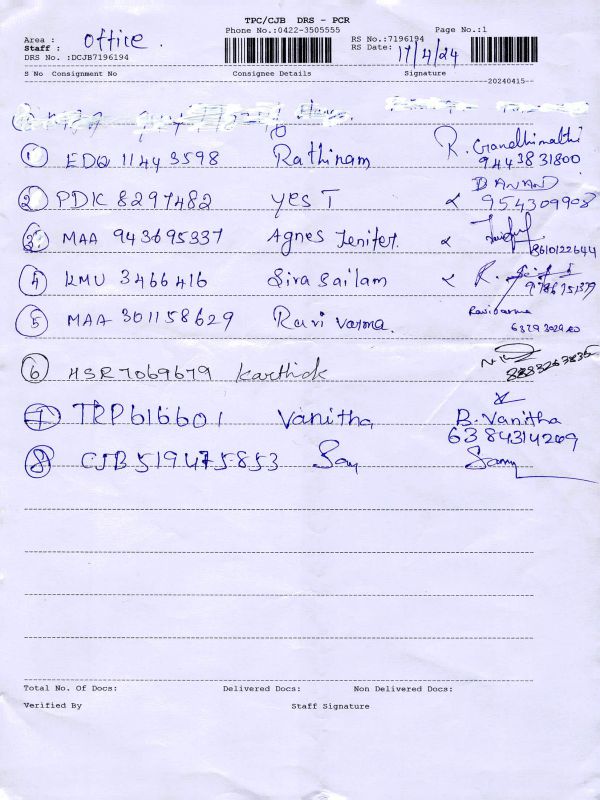 TPC/CJB DRS - PCR
Phone No.:0422-3505555 Page No.:1
Area : office. RS No.:7196194
Staff : RS Date: 17/4/24
DRS No. :DCJB7196194
S No Consignment No Consignee Details Signature
--20240415--
1 EDQ 11443598 Rathinam R. Gandhimathi
9443831800
2 PDK 8297482 Yes T D ANAND
954309908
3 MAA 943695337 Agnes Jenifer.
8610122644
4 KMU 3466416 Siva Sailam R.
9786751379
5 MAA 301158629 Ravi varma. Ravivarma
6 HSR7069679 Karthick
7 TRP616601 Vanitha B. Vanitha
6384314209
8 CJB519475853 Samy
Total No. Of Docs: Delivered Docs: Non Delivered Docs:
Verified By Staff Signature